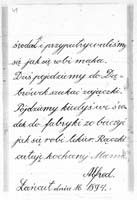 środek i przypatrywaliśmy
się jak się robi mąka.
Dziś pojedziemy do Dą-
brówek szukać zajączki.
Pójdziemy kiedyś w śro-
dek do fabryki zobaczyć
jak się robi likier. Rączki
całuję kochanej Mamie
Alfred.
Łańcut dnia 16 1894.